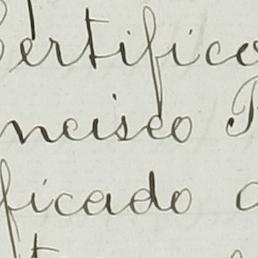 Certifico
ncisco
ficado